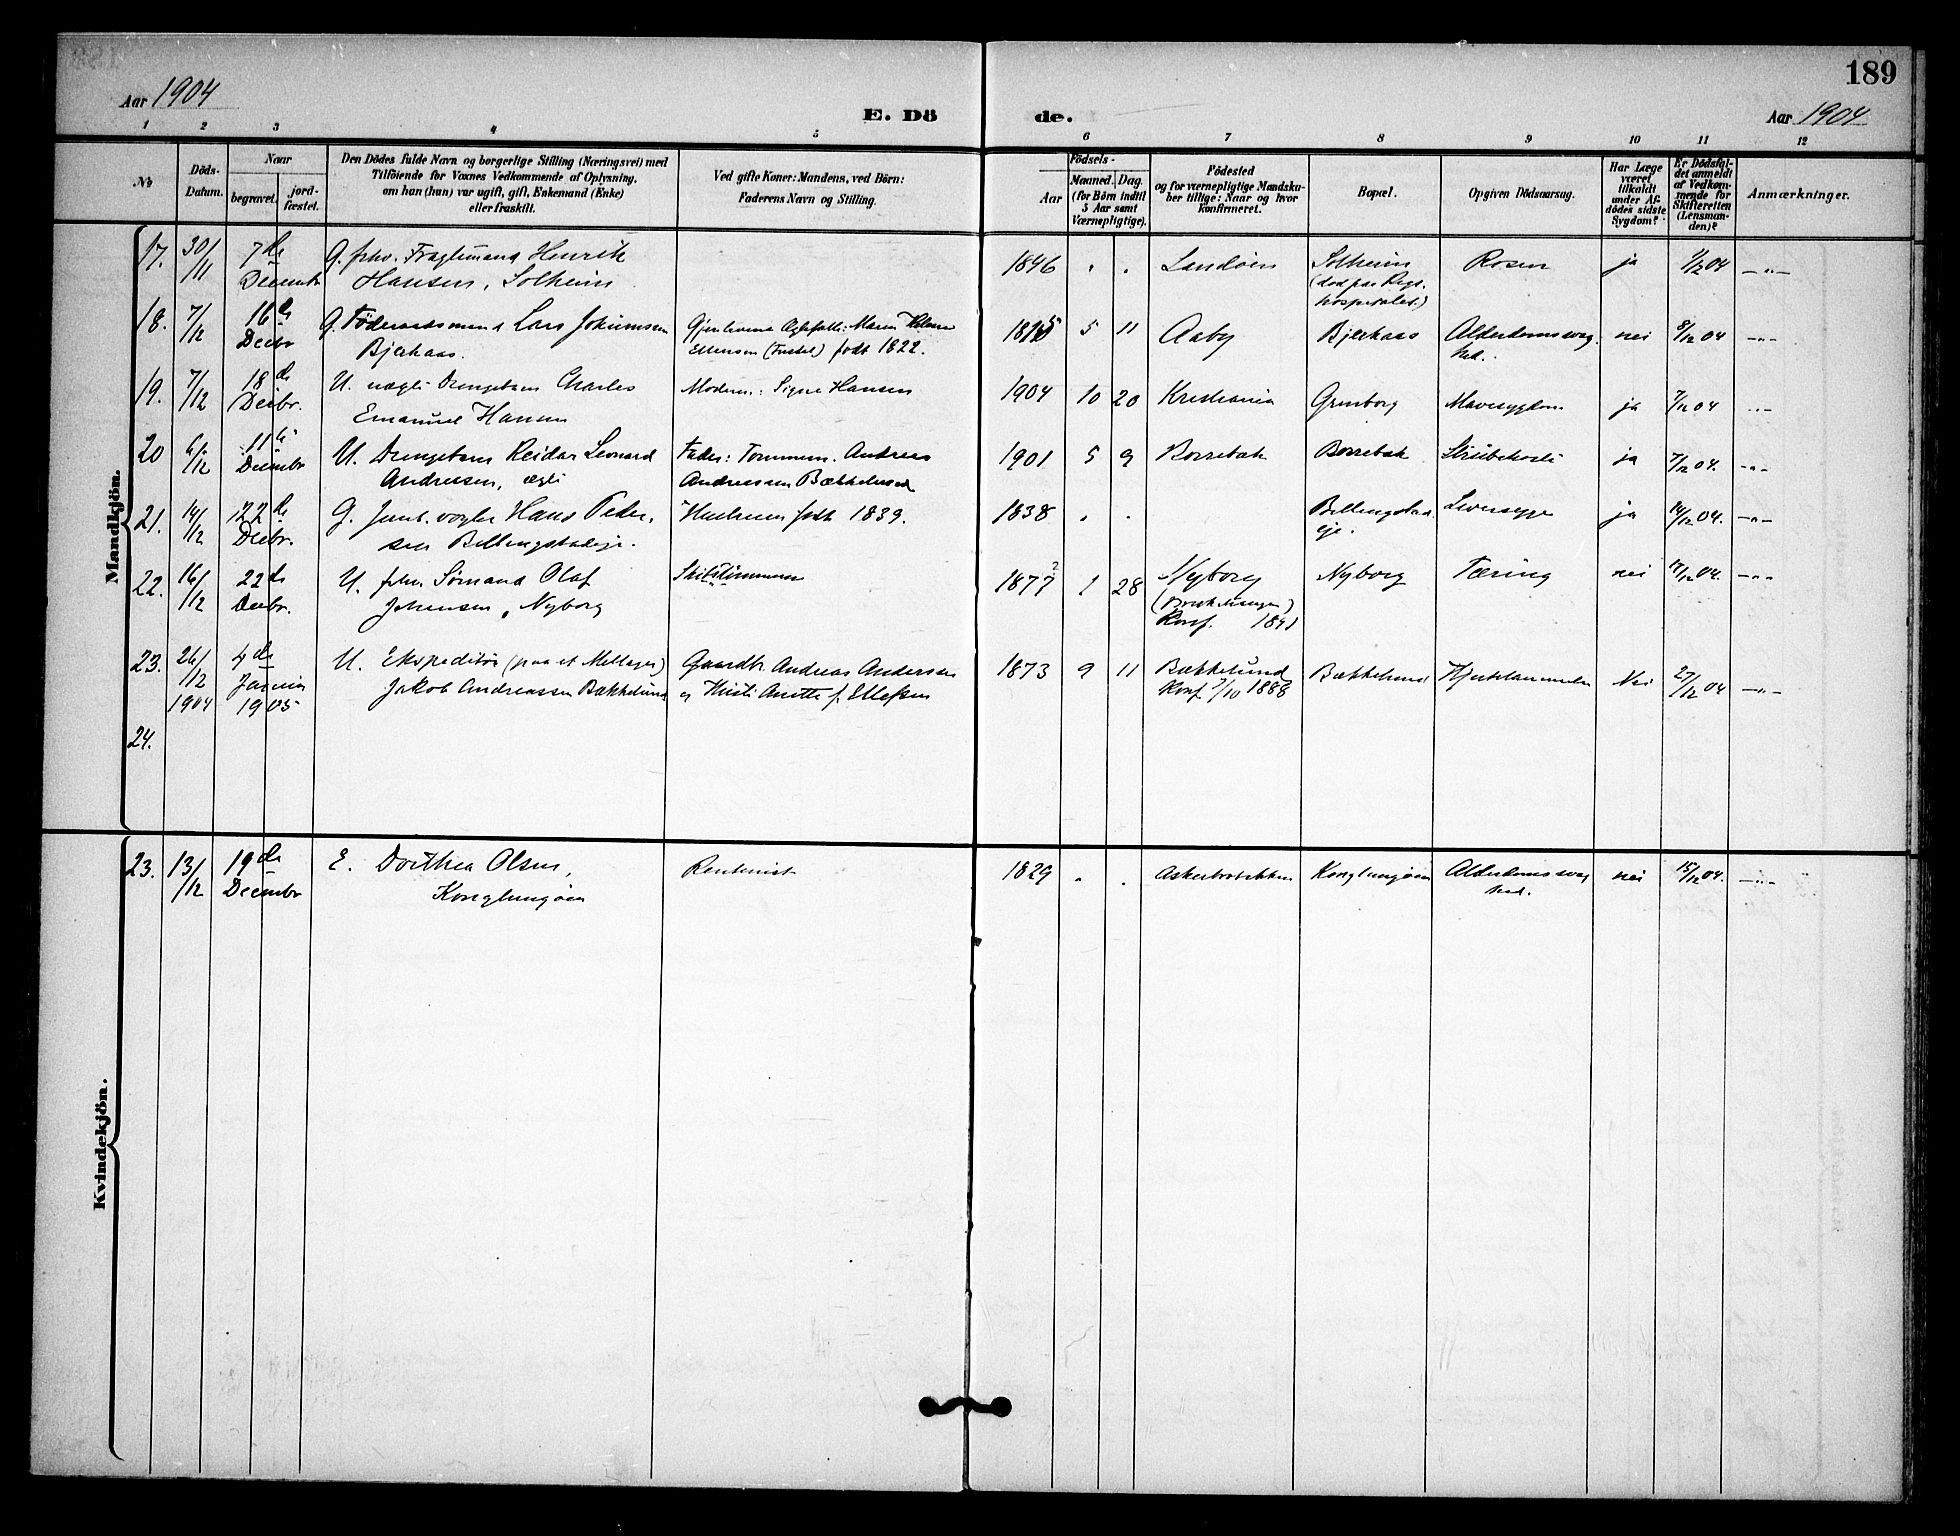 189
Aar 1904
E. Döde.
Aar 1904
1 2 3 4 5 6 7 8 9 10 11 12
№
Döds-
Datum.
Naar
begravet.
jord-
fæstet.
Den Dödes fulde Navn og borgerlige Stilling (Næringsvei) med
Tilföiende for Voxnes Vedkommende af Oplysning,
om han (hun) var ugift, gift, Enkemand (Enke)
eller fraskilt.
Ved gifte Koner: Mandens, ved Börn:
Faderens Navn og Stilling.
Födsels-
Aar
Maaned. Dag.
(for Börn indtil
5 Aar samt
Værnepligtige).
Födested
og for værnepligtige Mandska-
ber tillige: Naar og hvor
konfirmeret.
Bopæl.
Opgiven Dödsaarsag.
Har Læge
været
tilkaldt
under Af-
dödes sidste
Sygdom?
Er Dödsfal-
det anmeldt
af Vedkom-
mende for
Skifteretten
(Lensman-
den)?
Anmærkninger.
Mandkjön.
17. 30/11 7de Decembr G. fhv. Henrik Hansen, Solheim 1846 " " Landöen Solheim (död paa Rigshospitalet) Rosen ja 1/12 04 —"—
18. 7/12 16de Decbr G. Föderaadsmand Lars Jokumsen Bjerkaas. Gjenlevende Ægtefælle: Maren Ellensen født 1822. 5 11 Aaby Bjerkaas Alderdomssvaghed. nei 8/12 04 —"—
19. 7/12 18de Decbr. U. uægte Drengebarn Charles Emanuel Hansen Moderen: Signe Hansen 1904 10 20 Kristiania Grønborg Mavesygdom ja 7/12 04 —"—
20 6/12 11te Decembr U. Drengebarn Reidar Leonard Andreasen, ægte Fader: Tømmerm. Andreas Andreassen Bækkelund 1901 5 9 Borrebæk Borrebæk Strubehoste ja 7/12 04. —"—
21. 14/12 22de Decbr. G. Hans Pedersen Billingstadeje. Hustruen født 1839. 1838 " " Billingstadeje. Leversyge ja 14/12 04. —"—
22. 16/12 22de Decbr. U. fhv. Sømand Olaf Johansen, Nyborg Skibstømmerm 1877 1 28 Nyborg Konf. Nyborg Tæring nei 17/12 04. —"—
23. 26/12 1904 4de Januar 1905 U. Ekspeditør (paa et Mellager) Jakob Andreassen Bækkelund Gaardbr. Andreas Andersen og Kirsti Anette f. Ellefsen 1873 9 11 Bækkelund Konf. 7/10 1888 Bækkelund Hjertelammelse Nei 27/12 04 —"—
24.
Kvindekjön.
23. 13/12 19de Decembr E. Dorthea Olsen, Konglungøen Rentenist 1829 " " Askerbrobakken Konglungøen Alderdomssvaghed. nei 15/12 04. —"—